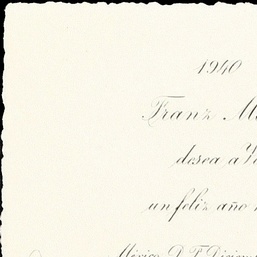 1940
Franz M
desea a V
un feliz año
México D.F. Diciem